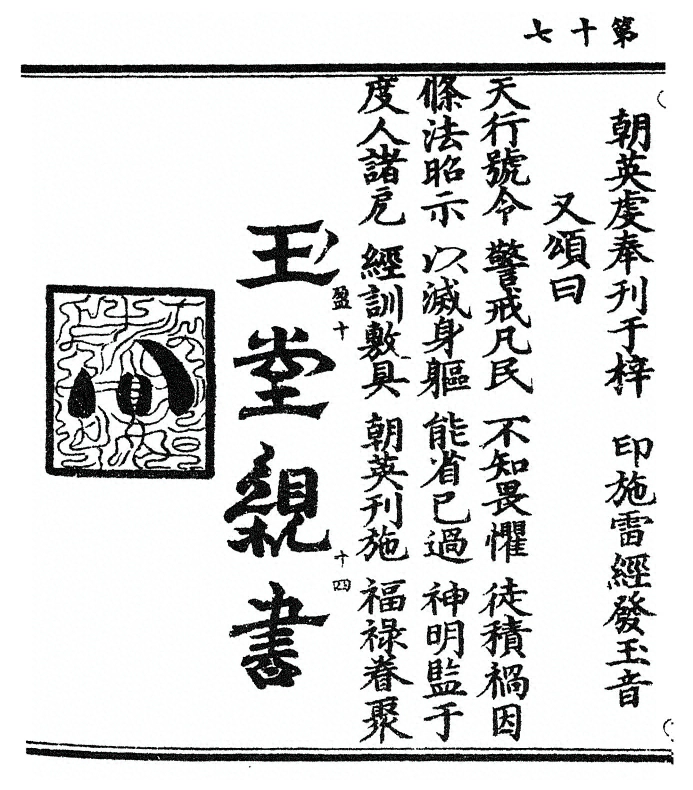 第十七
朝英虔奉刊于梓 印施雷經發玉音
又頌曰
天行號令 警戒凡民 不知畏懼 徒積禍因
條法昭示 以滅身軀 能省已過 神明監于
度人諸戹 經訓敷具 朝英刊施 福祿眷聚
盈十 十四
玉堂親書